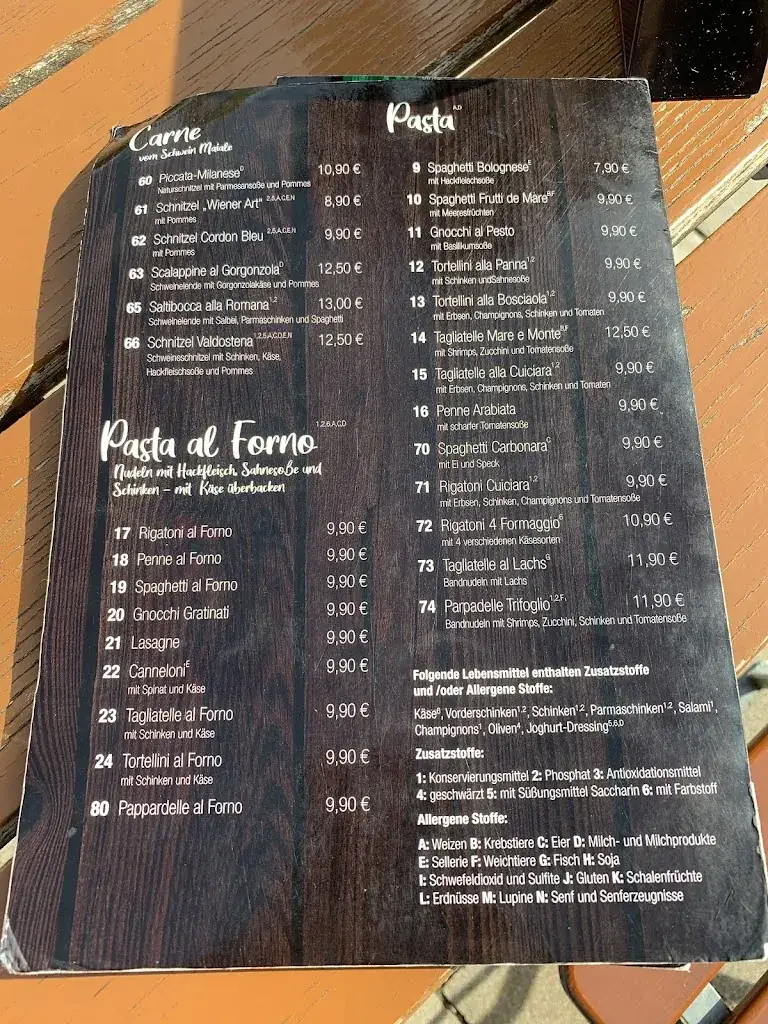 Carne
vom Schwein Maiale
60 Piccata-Milanese D 10,90 €
Naturschnitzel mit Parmesansoße und Pommes
61 Schnitzel „Wiener Art" 2,5,A,C,E,N 8,90 €
mit Pommes
62 Schnitzel Cordon Bleu 2,5,A,C,E,N 9,90 €
mit Pommes
63 Scalappine al Gorgonzola D 12,50 €
Schweinelende mit Gorgonzolakäse und Pommes
65 Saltibocca alla Romana 1,2 13,00 €
Schweinelende mit Salbei, Parmaschinken und Spaghetti
66 Schnitzel Valdostena 1,2,5,A,C,D,E,N 12,50 €
Schweineschnitzel mit Schinken, Käse,
Hackfleischsoße und Pommes
Pasta al Forno 1,2,6,A,C,D
Nudeln mit Hackfleisch, Sahnesoße und
Schinken – mit Käse überbacken
17 Rigatoni al Forno 9,90 €
18 Penne al Forno 9,90 €
19 Spaghetti al Forno 9,90 €
20 Gnocchi Gratinati 9,90 €
21 Lasagne 9,90 €
22 Canneloni E 9,90 €
mit Spinat und Käse
23 Tagliatelle al Forno 9,90 €
mit Schinken und Käse
24 Tortellini al Forno 9,90 €
mit Schinken und Käse
80 Pappardelle al Forno 9,90 €
Pasta A,D
9 Spaghetti Bolognese E 7,90 €
mit Hackfleischsoße
10 Spaghetti Frutti de Mare B,F 9,90 €
mit Meeresfrüchten
11 Gnocchi al Pesto 9,90 €
mit Basilikumsoße
12 Tortellini alla Panna 1,2 9,90 €
mit Schinken undSahnesoße
13 Tortellini alla Bosciaola 1,2 9,90 €
mit Erbsen, Champignons, Schinken und Tomaten
14 Tagliatelle Mare e Monte B,F 12,50 €
mit Shrimps, Zucchini und Tomatensoße
15 Tagliatelle alla Cuiciara 1,2 9,90 €
mit Erbsen, Champignons, Schinken und Tomaten
16 Penne Arabiata 9,90 €
mit scharfer Tomatensoße
70 Spaghetti Carbonara C 9,90 €
mit Ei und Speck
71 Rigatoni Cuiciara 1,2 9,90 €
mit Erbsen, Schinken, Champignons und Tomatensoße
72 Rigatoni 4 Formaggio 6 10,90 €
mit 4 verschiedenen Käsesorten
73 Tagliatelle al Lachs G 11,90 €
Bandnudeln mit Lachs
74 Parpadelle Trifoglio 1,2,F, 11,90 €
Bandnudeln mit Shrimps, Zucchini, Schinken und Tomatensoße
Folgende Lebensmittel enthalten Zusatzstoffe
und /oder Allergene Stoffe:
Käse 6, Vorderschinken 1,2, Schinken 1,2, Parmaschinken 1,2, Salami 1,
Champignons 1, Oliven 4, Joghurt-Dressing 5,6,D
Zusatzstoffe:
1: Konservierungsmittel 2: Phosphat 3: Antioxidationsmittel
4: geschwärzt 5: mit Süßungsmittel Saccharin 6: mit Farbstoff
Allergene Stoffe:
A: Weizen B: Krebstiere C: Eier D: Milch- und Milchprodukte
E: Sellerie F: Weichtiere G: Fisch H: Soja
I: Schwefeldioxid und Sulfite J: Gluten K: Schalenfrüchte
L: Erdnüsse M: Lupine N: Senf und Senferzeugnisse